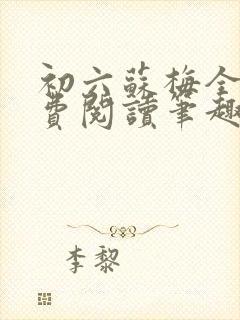 初六蘇梅全
費閱讀筆趣
李黎